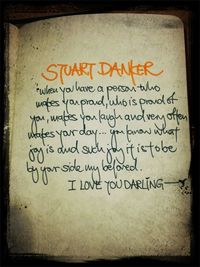 STUART DANKER
"when you have a person who
makes you proud, who is proud of
you, makes you laugh and very often
makes your day... you know what
joy is and such joy it is to be
by your side my beloved.
I LOVE YOU DARLING